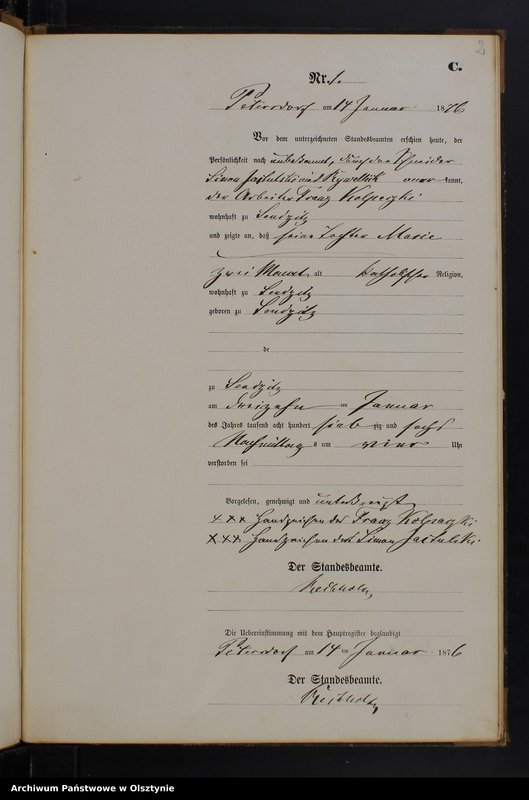 2
C.
Nr. 1.
Petersdorf am 14 Januar 1876
Vor dem unterzeichneten Standesbeamten erschien heute, der
Persönlichkeit nach unbekannt, durch den Schneider
Simon kannt,
der Arbeiter Franz
wohnhaft zu Sendzitz
und zeigte an, daß seine Tochter Marie
zwei Monat alt katholischer Religion,
wohnhaft zu Sendzitz
geboren zu Sendzitz
de
zu Sendzitz
am dreizehn ten Januar
des Jahres tausend acht hundert sieb zig und sechs
Nachmittag s um vier Uhr
verstorben sei
Vorgelesen, genehmigt und unterkreuzt
+++ Handzeichen des Franz
XXX Handzeichen des Simon
Der Standesbeamte.
Die Uebereinstimmung mit dem Hauptregister beglaubigt
Petersdorf am 14 ten Januar 1876
Der Standesbeamte.
Archiwum Państwowe w Olsztynie